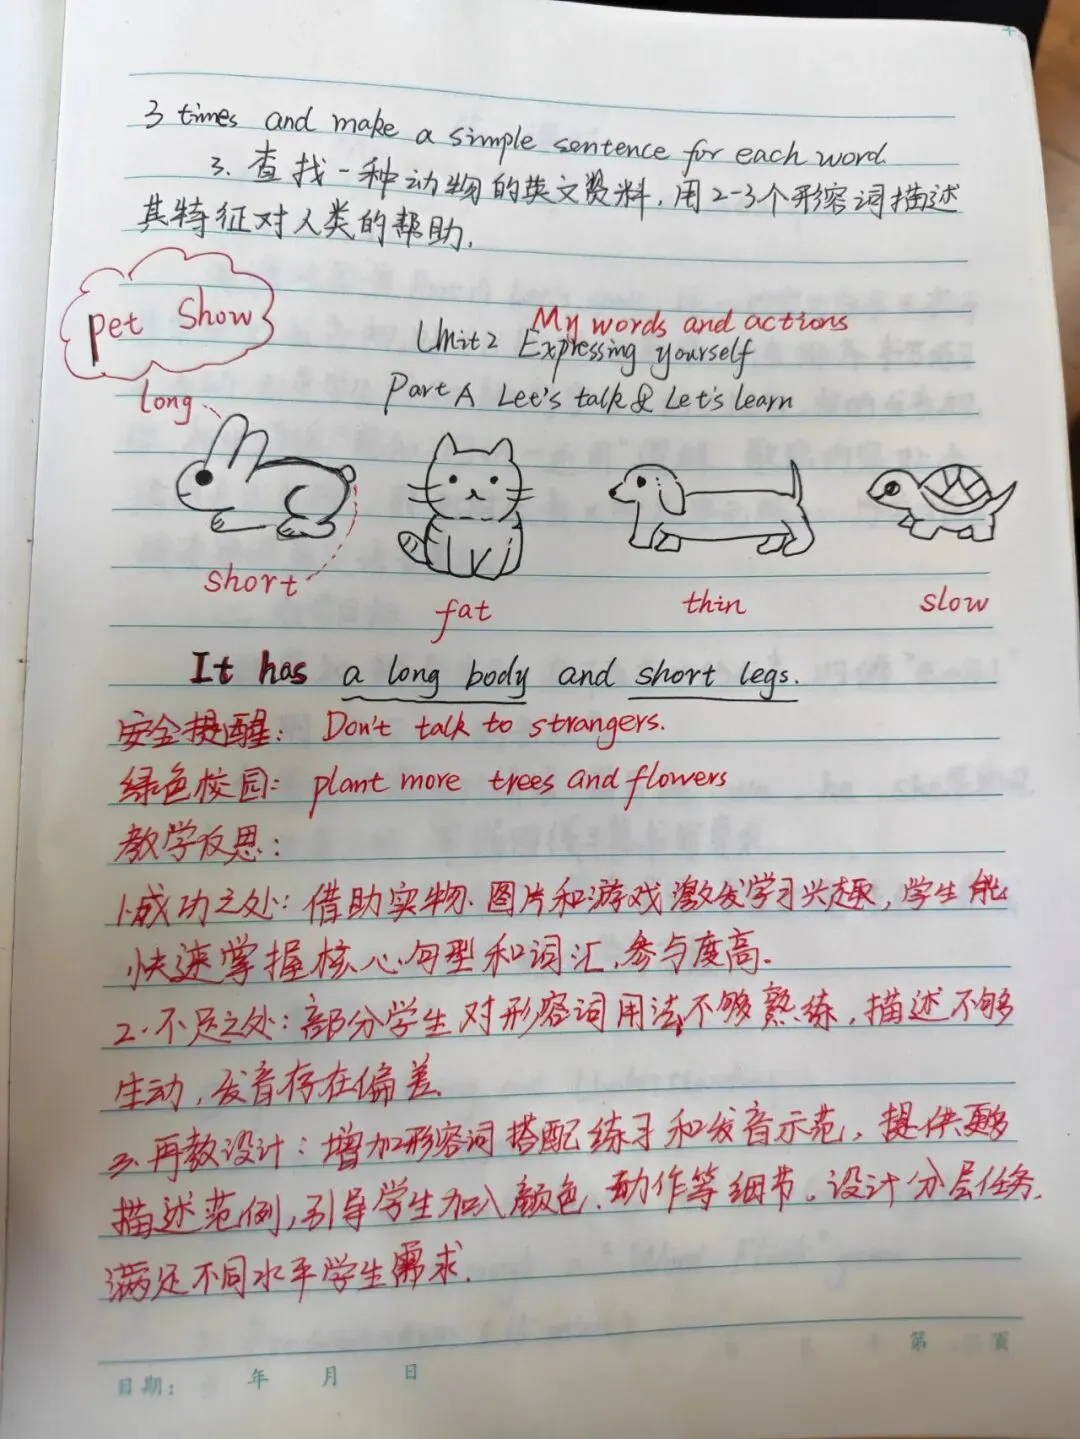 3 times and make a simple sentence for each word.
3. 查找一种动物的英文资料，用2-3个形容词描述
其特征对人类的帮助.
pet Show
My words and actions
Unit2 Expressing yourself
Part A Let's talk & Let's learn
long
short
fat
thin
slow
It has a long body and short legs.
安全提醒: Don't talk to strangers.
绿色校园: plant more trees and flowers
教学反思:
1.成功之处: 借助实物、图片和游戏激发学习兴趣, 学生能
快速掌握核心句型和词汇, 参与度高.
2. 不足之处: 部分学生对形容词用法不够熟练, 描述不够
生动, 发音存在偏差.
3. 再教设计: 增加形容词搭配练习和发音示范, 提供更多
描述范例, 引导学生加入颜色、动作等细节。设计分层任务,
满足不同水平学生需求.
第 页
日期: 年 月 日